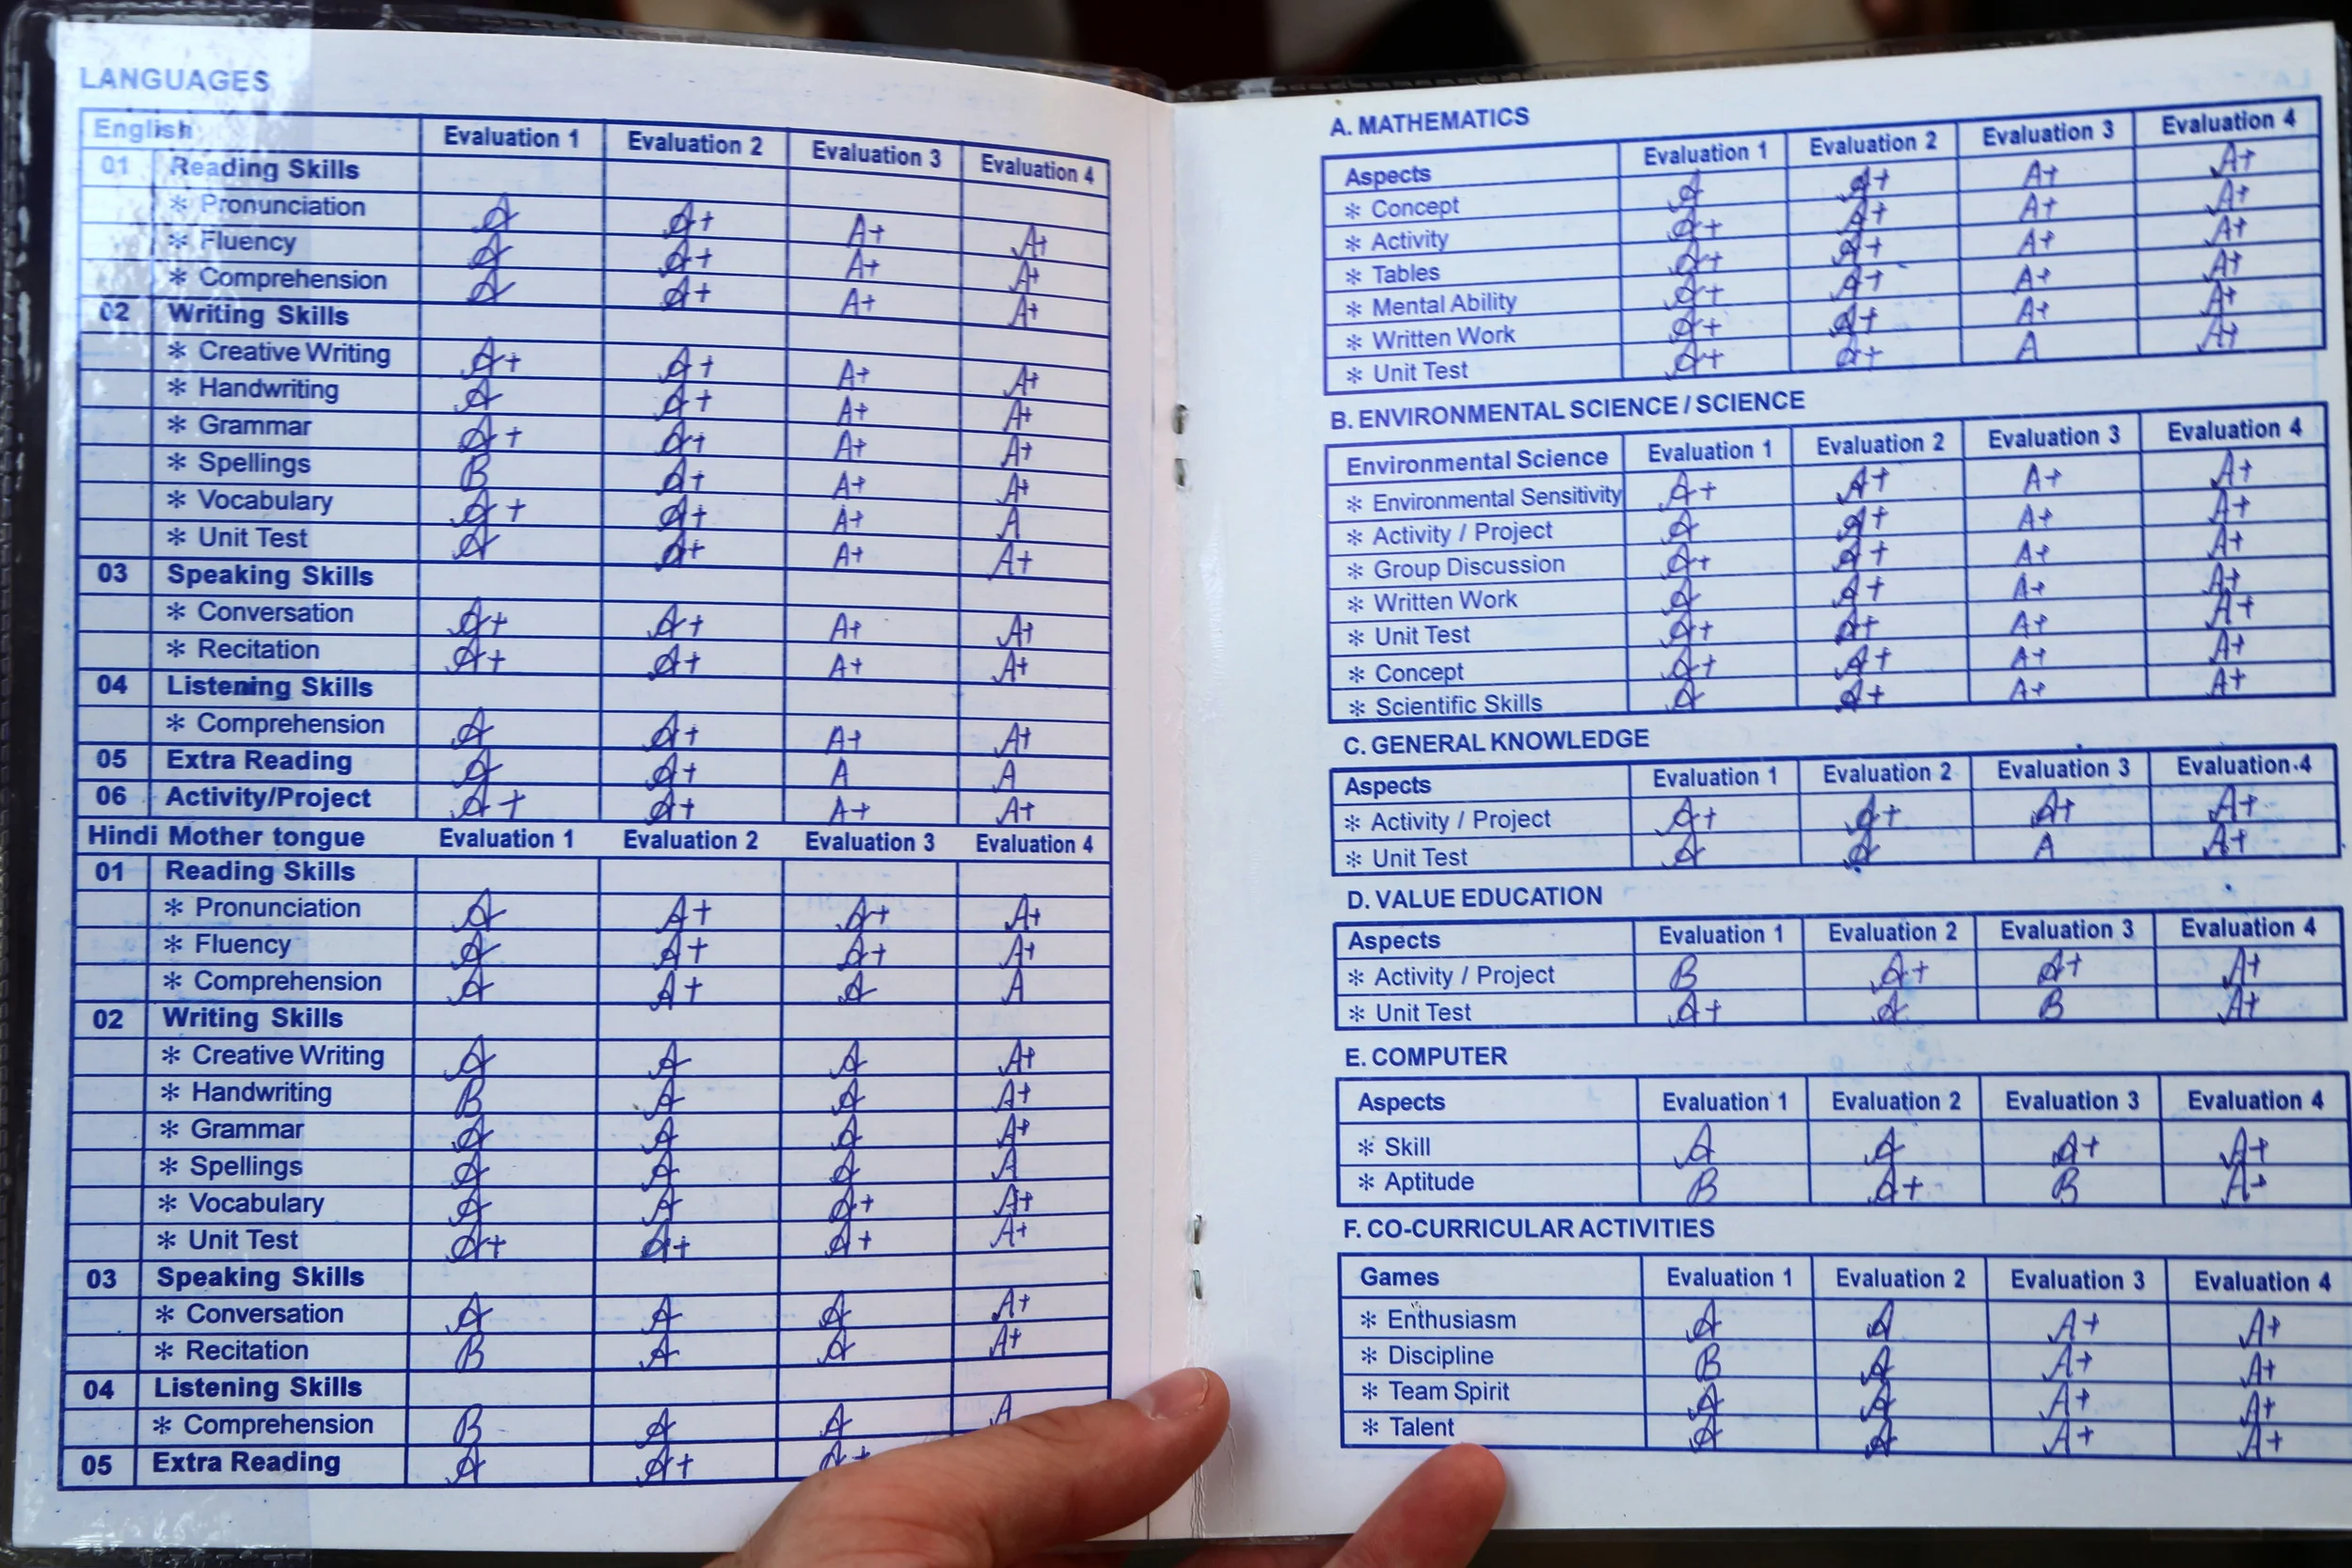 LANGUAGES
English Evaluation 1 Evaluation 2 Evaluation 3 Evaluation 4
01 Reading Skills
* Pronunciation A A+ A+ A+
* Fluency A A+ A+ A+
* Comprehension A A+ A+ A+
02 Writing Skills
* Creative Writing A+ A+ A+ A+
* Handwriting A A+ A+ A+
* Grammar A+ A+ A+ A+
* Spellings B A+ A+ A+
* Vocabulary A+ A+ A+ A
* Unit Test A A+ A+ A+
03 Speaking Skills
* Conversation A+ A+ A+ A+
* Recitation A+ A+ A+ A+
04 Listening Skills
* Comprehension A A+ A+ A+
05 Extra Reading A A+ A A
06 Activity/Project A+ A+ A+ A+
Hindi Mother tongue Evaluation 1 Evaluation 2 Evaluation 3 Evaluation 4
01 Reading Skills
* Pronunciation A A+ A+ A+
* Fluency A A+ A+ A+
* Comprehension A A+ A A
02 Writing Skills
* Creative Writing A A A A+
* Handwriting B A A A+
* Grammar A A A A+
* Spellings A A A A
* Vocabulary A A A+ A+
* Unit Test A+ A+ A+ A+
03 Speaking Skills
* Conversation A A A A+
* Recitation B A A A+
04 Listening Skills
* Comprehension B A A A
05 Extra Reading A A+ A+
A. MATHEMATICS
Aspects Evaluation 1 Evaluation 2 Evaluation 3 Evaluation 4
* Concept A A+ A+ A+
* Activity A+ A+ A+ A+
* Tables A+ A+ A+ A+
* Mental Ability A+ A+ A+ A+
* Written Work A+ A+ A+ A+
* Unit Test A+ A+ A A+
B. ENVIRONMENTAL SCIENCE / SCIENCE
Environmental Science Evaluation 1 Evaluation 2 Evaluation 3 Evaluation 4
* Environmental Sensitivity A+ A+ A+ A+
* Activity / Project A A+ A+ A+
* Group Discussion A+ A+ A+ A+
* Written Work A A+ A+ A+
* Unit Test A+ A+ A+ A+
* Concept A+ A+ A+ A+
* Scientific Skills A A+ A+ A+
C. GENERAL KNOWLEDGE
Aspects Evaluation 1 Evaluation 2 Evaluation 3 Evaluation 4
* Activity / Project A+ A+ A+ A+
* Unit Test A A A A+
D. VALUE EDUCATION
Aspects Evaluation 1 Evaluation 2 Evaluation 3 Evaluation 4
* Activity / Project B A+ A+ A+
* Unit Test A+ A B A+
E. COMPUTER
Aspects Evaluation 1 Evaluation 2 Evaluation 3 Evaluation 4
* Skill A A A+ A+
* Aptitude B A+ B A+
F. CO-CURRICULAR ACTIVITIES
Games Evaluation 1 Evaluation 2 Evaluation 3 Evaluation 4
* Enthusiasm A A A+ A+
* Discipline B A A+ A+
* Team Spirit A A A+ A+
* Talent A A A+ A+